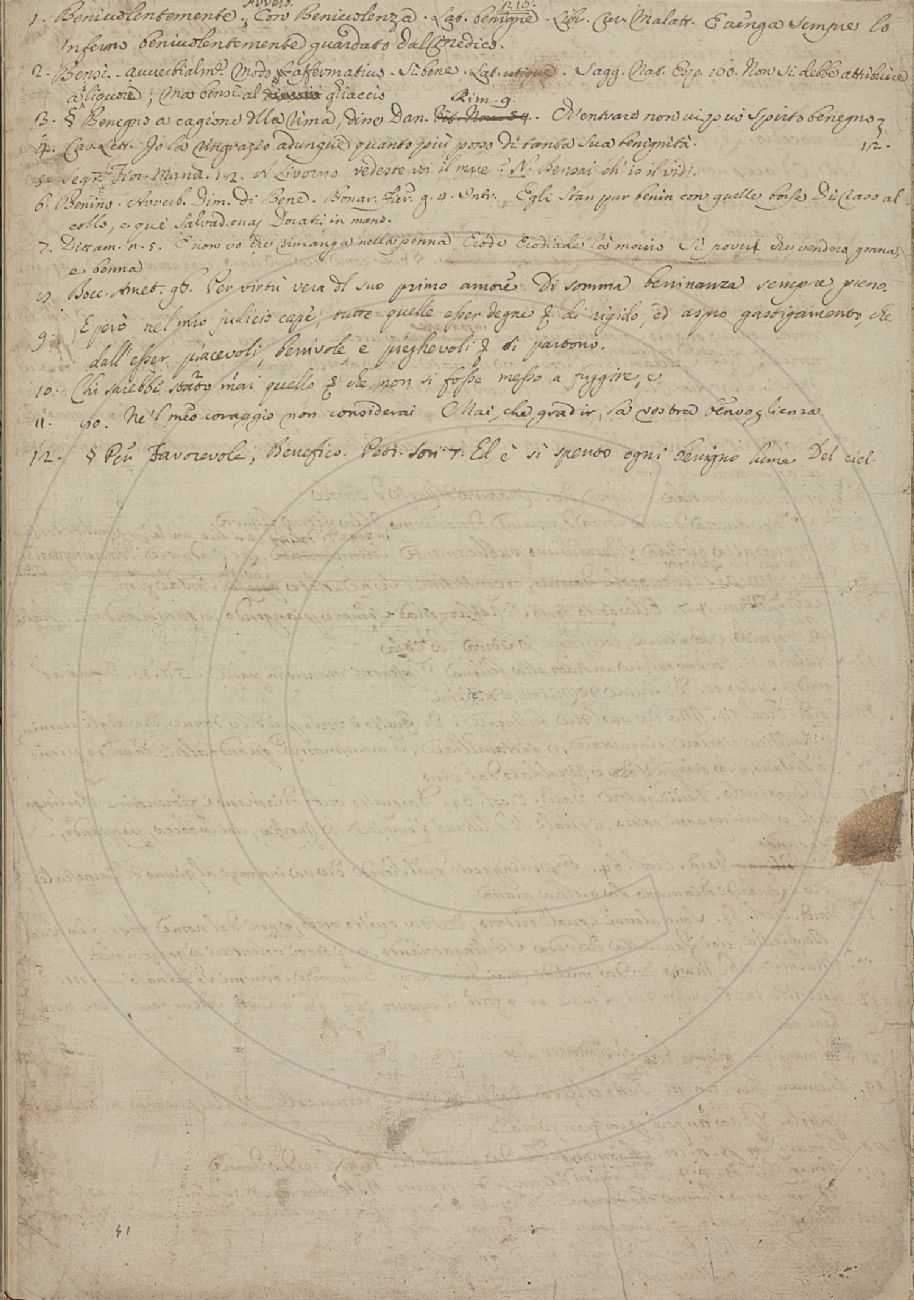 Avverb.
1. Benivolentemente. Con Benivolenza. Lat. benigne. Libr. Cur. Malatt. E venga sempre lo
Infermo benivolentemente guardato dal Medico.
2. Bensì. avverbialm. Modo affermativo. Sì bene. Lat. utique. Sagg. Nat. Esp. 160. Non si debbe attribuire
a liquore; ma bensì al ghiaccio
Rim. 9.
3. § Benegno a cagione della rima, disse Dan. Ed entrare non vi può spirito benegno
4. Car. Lett. Io la ringrazio adunque quanto più posso di tanta sua benignità. 12.
5. Segr. Fior. Mand. 1. 2. A Livorno vedeste voi il mare? N. Bensai ch'io il vidi.
6. Benino. Avverb. Dim. di Bene. Bonar. Fier. g. 4. Intr. Egli stan pur benin con quelle borse Di raso al
collo, e que' Salvadanaj Dorati in mano.
7. Dittam. n. 5. E non vo' che rimanga nella penna Erode Erodiade la moris Sì poveri che vendero gonna,
e benna
8. Bocc. Amet. 98. Per virtù vera del suo primo amore Di somma beninanza sempre pieno.
9. E però nel mio judicio cape, tutte quelle esser degne di rigido, ed aspro gastigamento, che
dall'esser piacevoli, benivole, e pieghevoli di partono.
10. Chi sarebbe stato mai quello che non si fosse messo a fuggire, e
11. Nè 'l meo coraggio non considerai Mai, che gradir, la vostra benvoglienza
12. § Per Favorevole, Benefico. Petr. Son. 7. Ed è sì spento ogni benigno lume Del ciel.